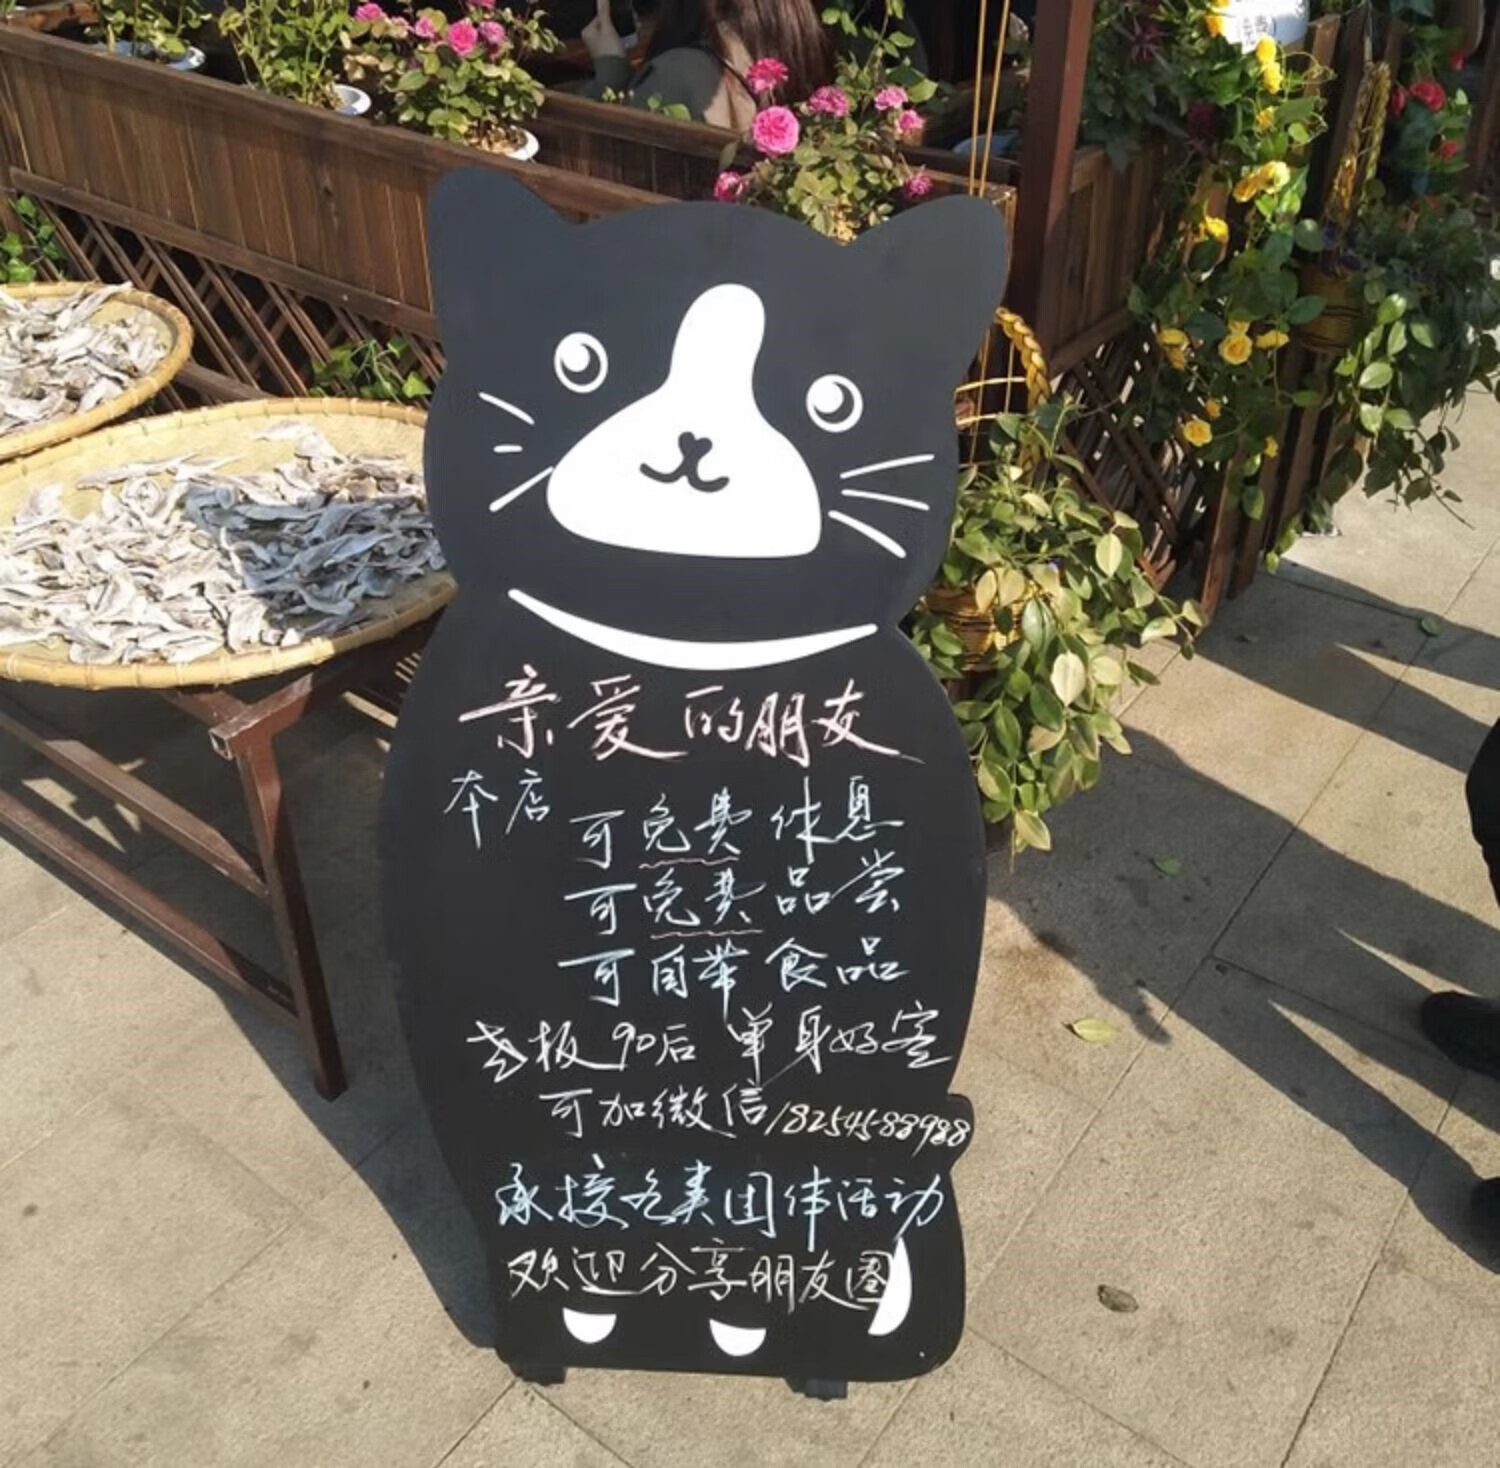 亲爱的朋友
本店
可免费休息
可免费品尝
可自带食品
老板90后 单身好客
可加微信18254588988
承接各类团体活动
欢迎分享朋友圈